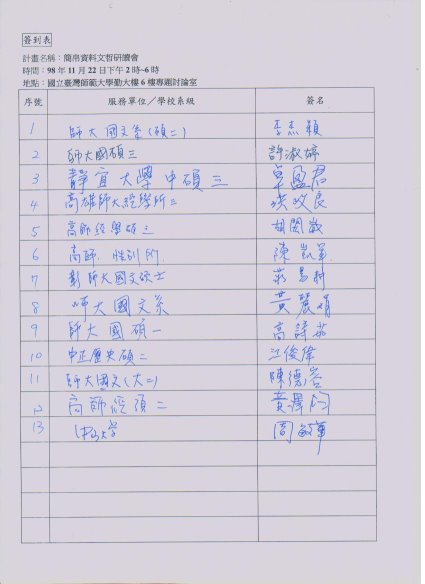 簽到表
計畫名稱：簡帛資料文哲研讀會
時間：98年11月22日下午2時~6時
地點：國立臺灣師範大學勤大樓6樓專題討論室
序號 服務單位／學校系級 簽名
1 師大國文系(碩二) 李杰穎
2 師大國碩三 許淑婷
3 靜宜大學中碩三 卓盈君
4 高雄師大經學所二 改良
5 高師經學碩三 胡
6 高師.性別所. 陳凱
7 彰師大國文碩士
8 師大國文系 黃麗娟
9 師大國碩一 高詩
10 中正歷史碩二 江俊偉
11 師大國文(大二) 陳德
12 高師經碩二 黃澤鈞
13 中山大學 周敏華